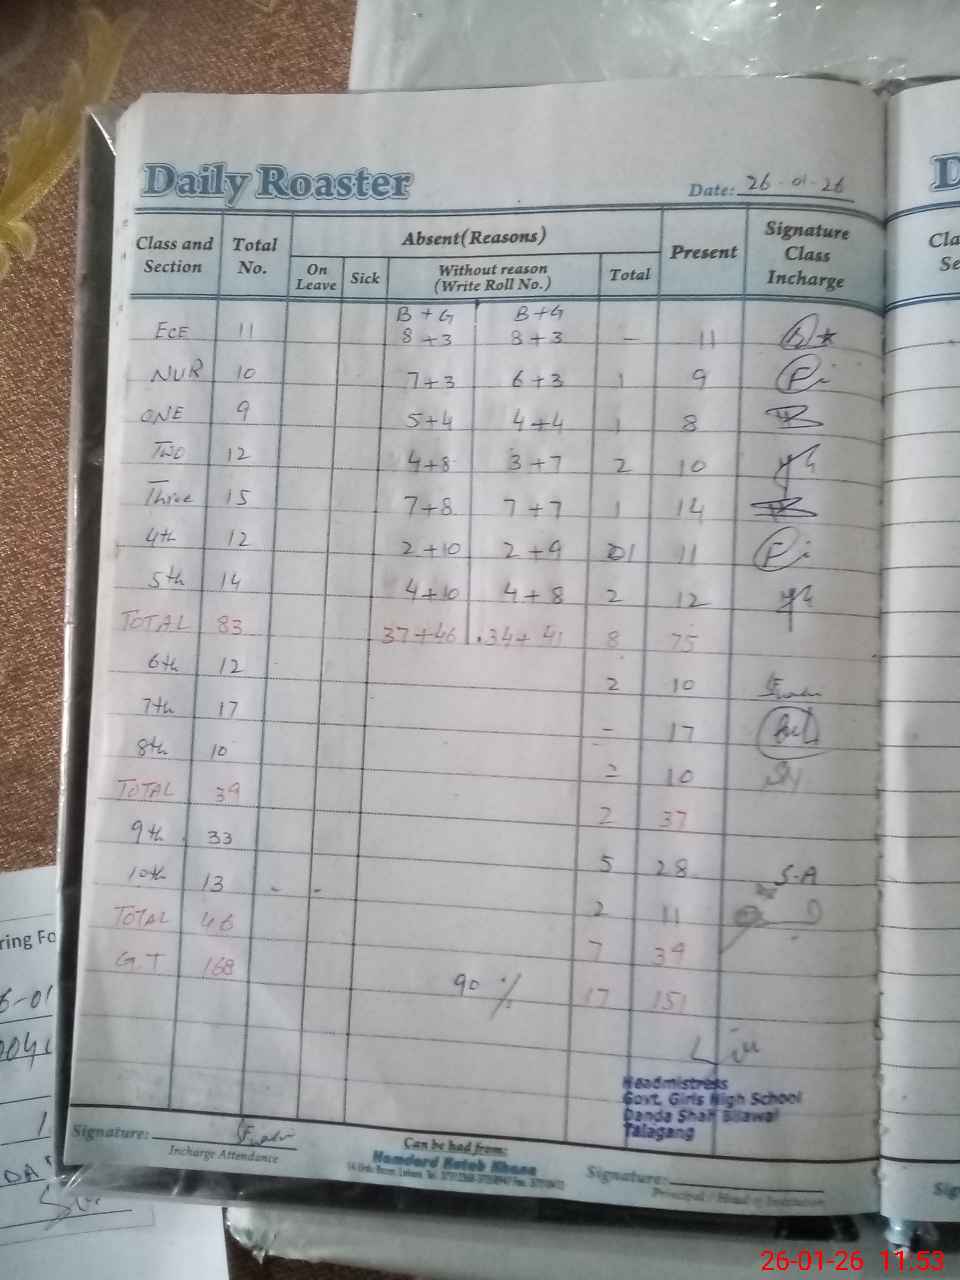 Daily Roaster
Date: 26-01-26
Class and Section Total No. Absent(Reasons) Present Signature Class Incharge
On Leave Sick Without reason (Write Roll No.) Total
B+G B+G
ECE 11 8+3 8+3 - 11
NUR 10 7+3 6+3 1 9
ONE 9 5+4 4+4 1 8
TWO 12 4+8 3+7 2 10
Three 15 7+8 7+7 1 14
4th 12 2+10 2+9 01 11
5th 14 4+10 4+8 2 12
TOTAL 83 37+46 34+41 8 75
6th 12 2 10
7th 17 - 17
8th 10 = 10
TOTAL 39 2 37
9th 33 5 28 S-A
10th 13 - - 2 11
TOTAL 46 7 39
G.T 168 90 % 17 151
Headmistress
Govt. Girls High School
Danda Shah Bilawal
Talagang
Signature:
Incharge Attendance
Can be had from:
Hamdard Kutab Khana
Signature:
Principal / Head of Institution
ring Fo
6-01
0041
1
DA
D
Cla
Se
Sig
26-01-26 11:53